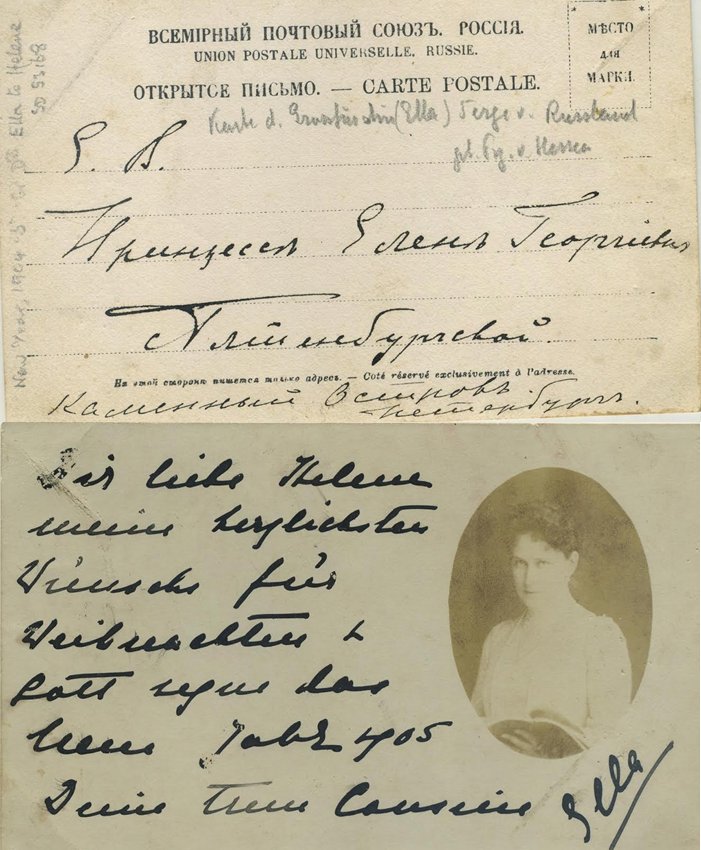 ВСЕМІРНЫЙ ПОЧТОВЫЙ СОЮЗЪ. РОССІЯ.
UNION POSTALE UNIVERSELLE. RUSSIE.
ОТКРЫТОЕ ПИСЬМО. — CARTE POSTALE.
МѢСТО
для
МАРКИ.
Karte d. Grossfürstin (Ella) Serge v. Russland
geb. Pz. v. Hessen
Е. В.
Принцессѣ Еленѣ Георгіевнѣ
Альтенбургской.
На этой сторонѣ пишется только адресъ. — Coté réservé exclusivement à l'adresse.
Каменный Островъ
Петербургъ.
New Year, 1904-5 Ella to Helene
SD 53168
Dir liebe Helene
meine herzlichsten
Wünsche für
Weihnachten &
Gott segne das
Neue Jahr 1905
Deine treue Cousine Ella